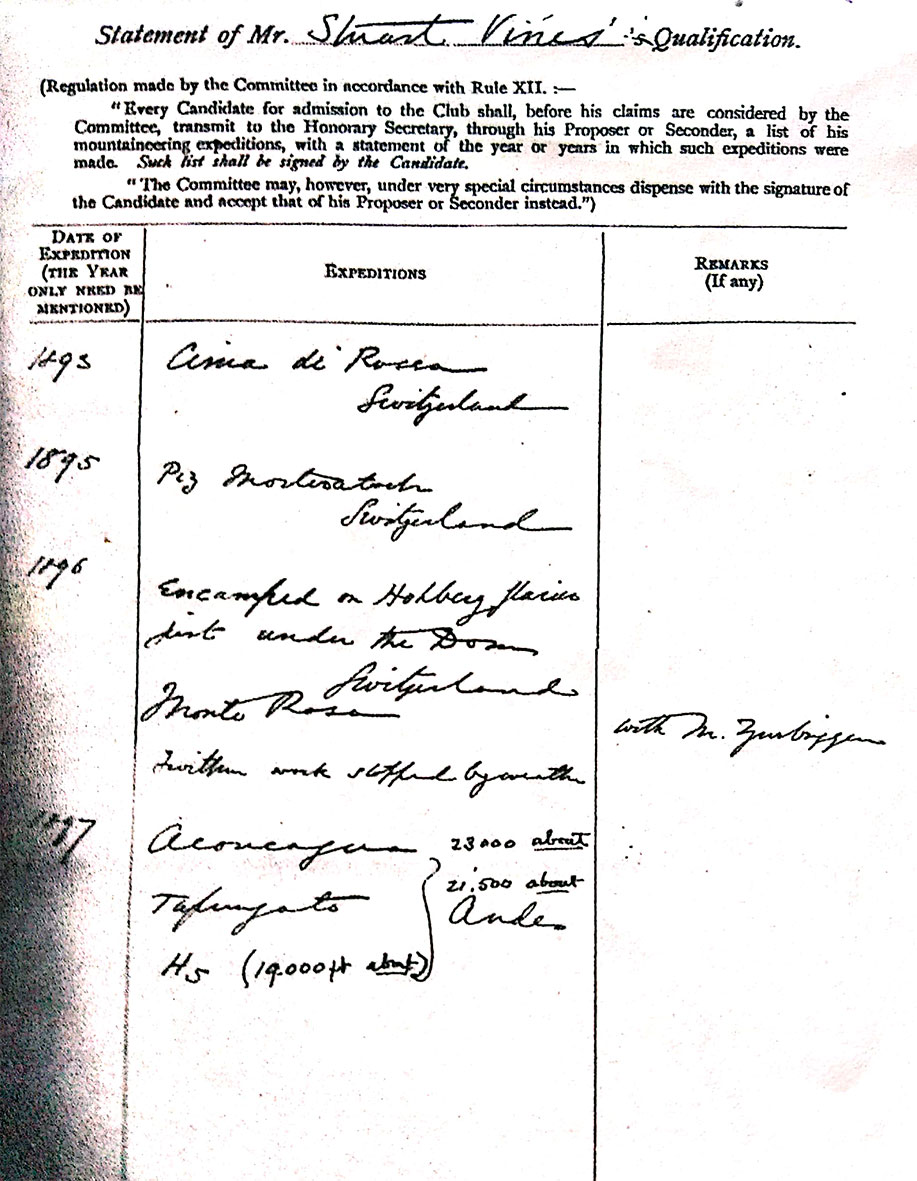 Statement of Mr. Stuart Vines's Qualification.
(Regulation made by the Committee in accordance with Rule XII. :—
"Every Candidate for admission to the Club shall, before his claims are considered by the
Committee, transmit to the Honorary Secretary, through his Proposer or Seconder, a list of his
mountaineering expeditions, with a statement of the year or years in which such expeditions were
made. Such list shall be signed by the Candidate.
"The Committee may, however, under very special circumstances dispense with the signature of
the Candidate and accept that of his Proposer or Seconder instead.")
DATE OF
EXPEDITION
(THE YEAR
ONLY NEED BE
MENTIONED)
EXPEDITIONS
REMARKS
(If any)
1893 Cima di Rosso
Switzerland
1895 Piz Morteratsch
Switzerland
1896
Encamped on Hohberg glacier
just under the Dom
Switzerland
Monte Rosa
with M. Zurbriggen
work stopped by weather
1897 Aconcagua 23000 about
Tupungato 21,500 about
Andes
(19,000 ft about)